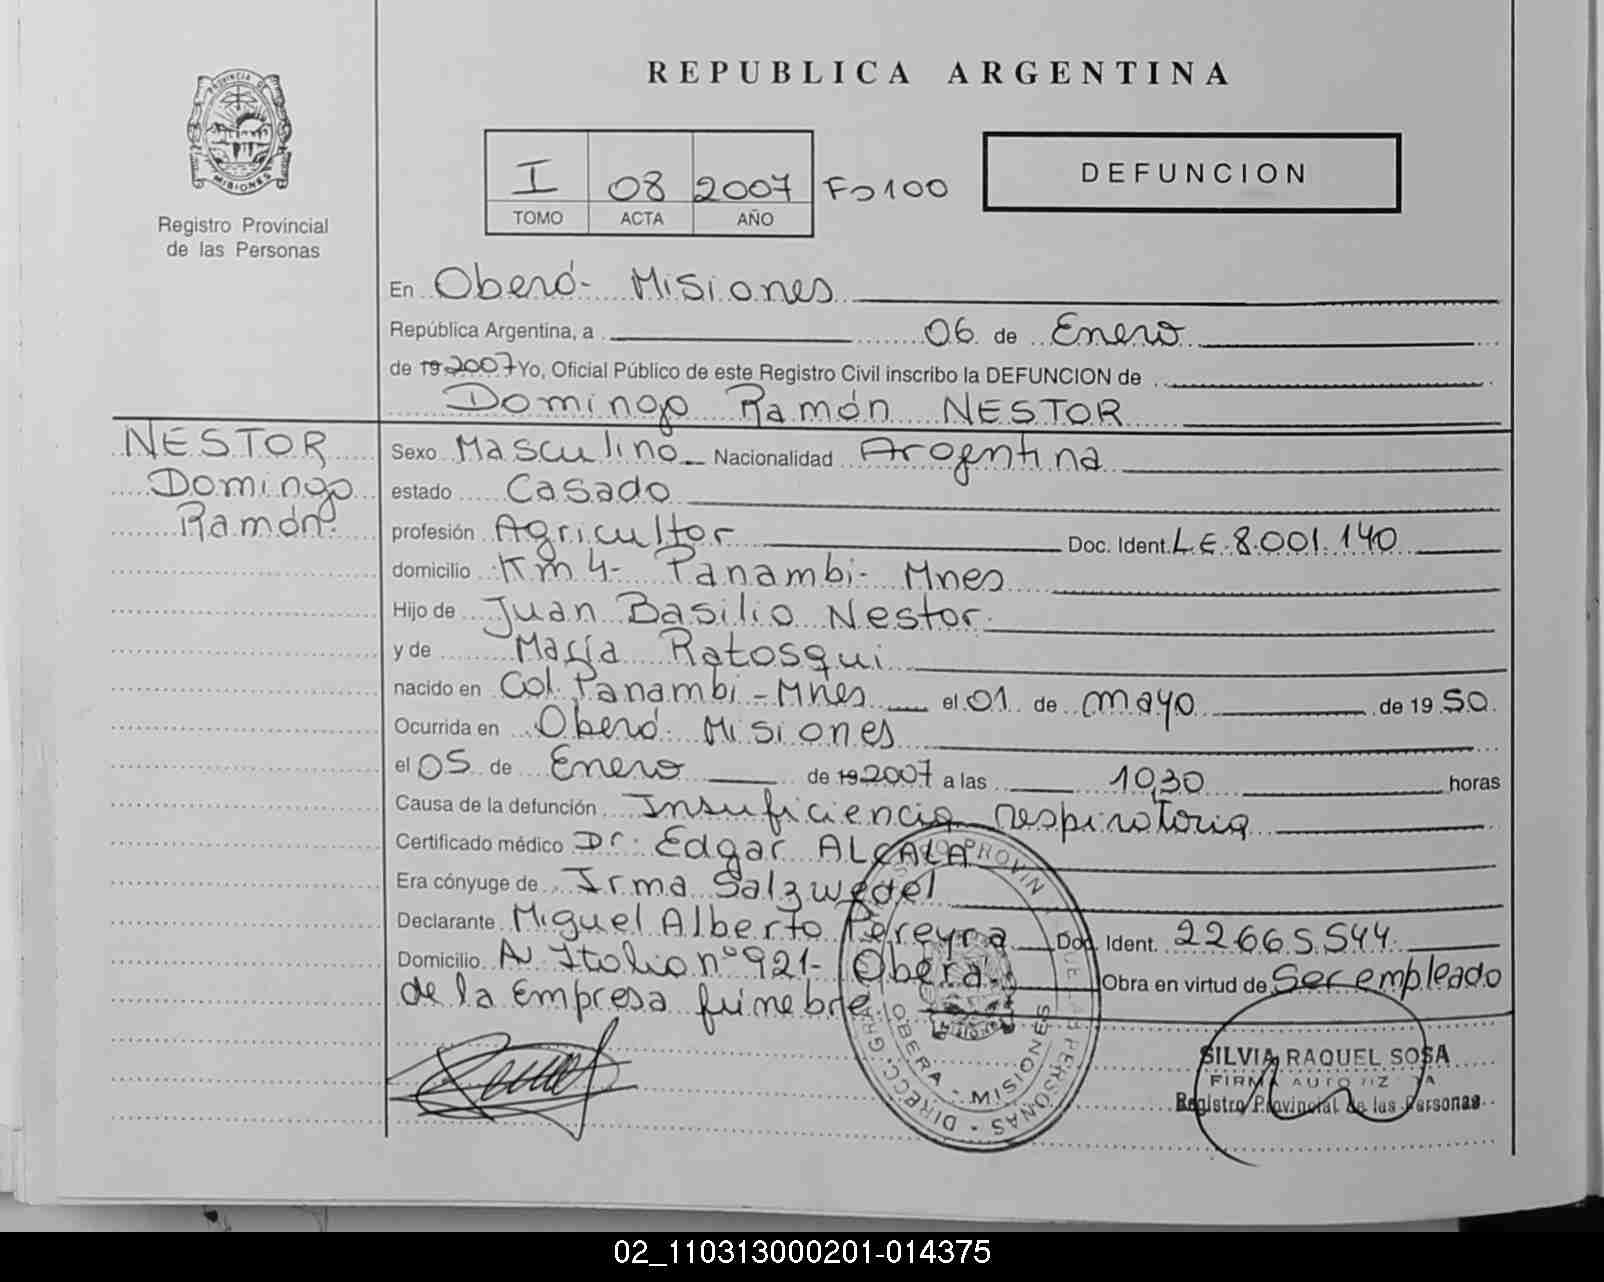 REPUBLICA ARGENTINA
PROVINCIA DE
MISIONES
Registro Provincial
de las Personas
I 08 2007 Fo 100
TOMO ACTA AÑO
DEFUNCION
En Oberá- Misiones
República Argentina, a 06 de Enero
de 19 2007 Yo, Oficial Público de este Registro Civil inscribo la DEFUNCION de
Domingo Ramón NESTOR
NESTOR
Domingo
Ramón.
Sexo Masculino Nacionalidad Argentina
estado Casado
profesión Agricultor Doc. Ident. L.E. 8.001.140
domicilio Km 4- Panambi- Mnes
Hijo de Juan Basilio Nestor.
y de María Ratosqui
nacido en Col. Panambi - Mnes el 01 de mayo de 19 50.
Ocurrida en Oberá Misiones
el 05 de Enero de 19 2007 a las 10,30 horas
Causa de la defunción Insuficiencia respiratoria
Certificado médico Dr. Edgar ALCALA
Era cónyuge de Irma Salzwedel
Declarante Miguel Alberto Pereyra Doc. Ident. 22665.544.
Domicilio Av Italia nº 921- Oberá. Obra en virtud de Ser empleado
de la Empresa fúnebre
OBERA - MISIONES
SILVIA RAQUEL SOSA
FIRMA AUTORIZADA
Registro Provincial de las Personas
02_110313000201-014375